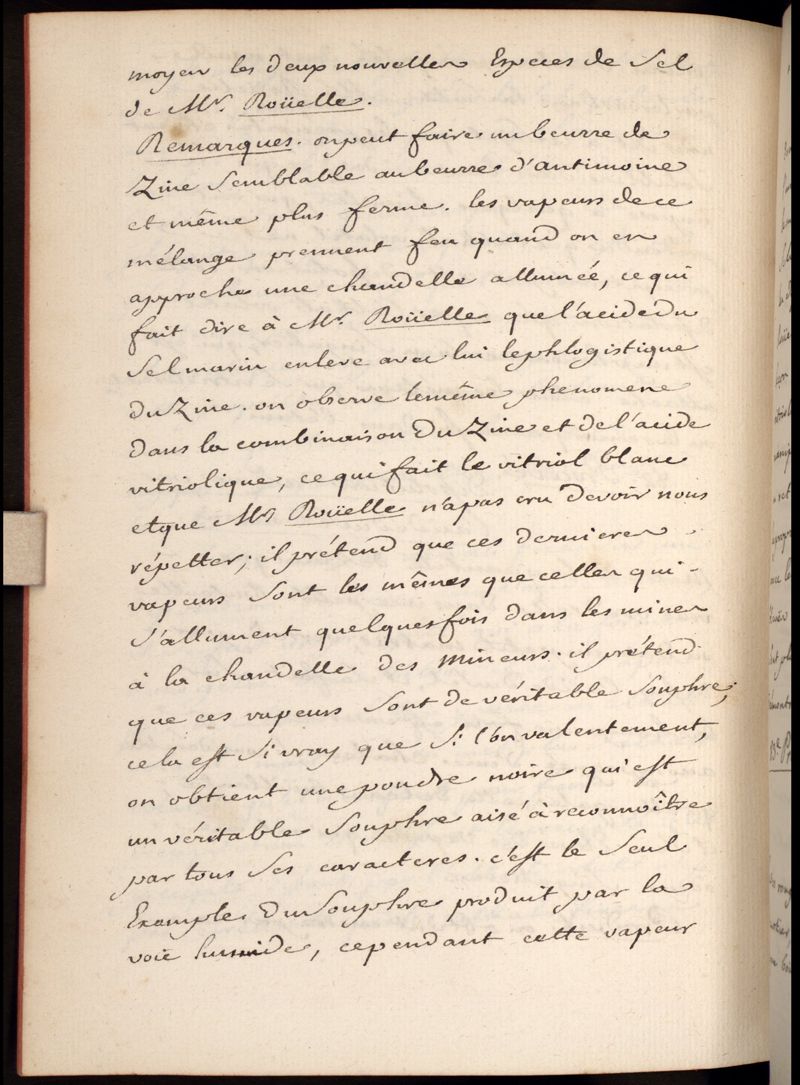 moyen les deux nouvelles Especes de Sel
de Mr. Roüelle.
Remarques. on peut faire un beurre de
Zinc Semblable au beurre d'antimoine
et même plus ferme. les vapeurs de ce
mélange prennent feu quand on en
approche une chandelle allumée, ce qui
fait dire à Mr. Roüelle que l'acide du
Sel marin enleve avec lui le phlogistique
du Zinc. on observe le même phenomene
dans la combinaison du Zinc et de l'acide
vitriolique, ce qui fait le vitriol blanc
et que Mr Roüelle n'a pas cru devoir nous
répetter; il prétend que ces dernieres
vapeurs Sont les mêmes que celles qui-
S'allument quelques fois dans les mines
à la chandelle des mineurs. il prétend
que ces vapeurs Sont de véritable Souphre;
cela est Si vray que Si l'on va lentement,
on obtient une poudre noire qui est
un véritable Souphre aisé à reconnoître
par tous Ses caracteres. c'est le Seul
Exemple du Souphre produit par la
voie humide, cependant cette vapeur